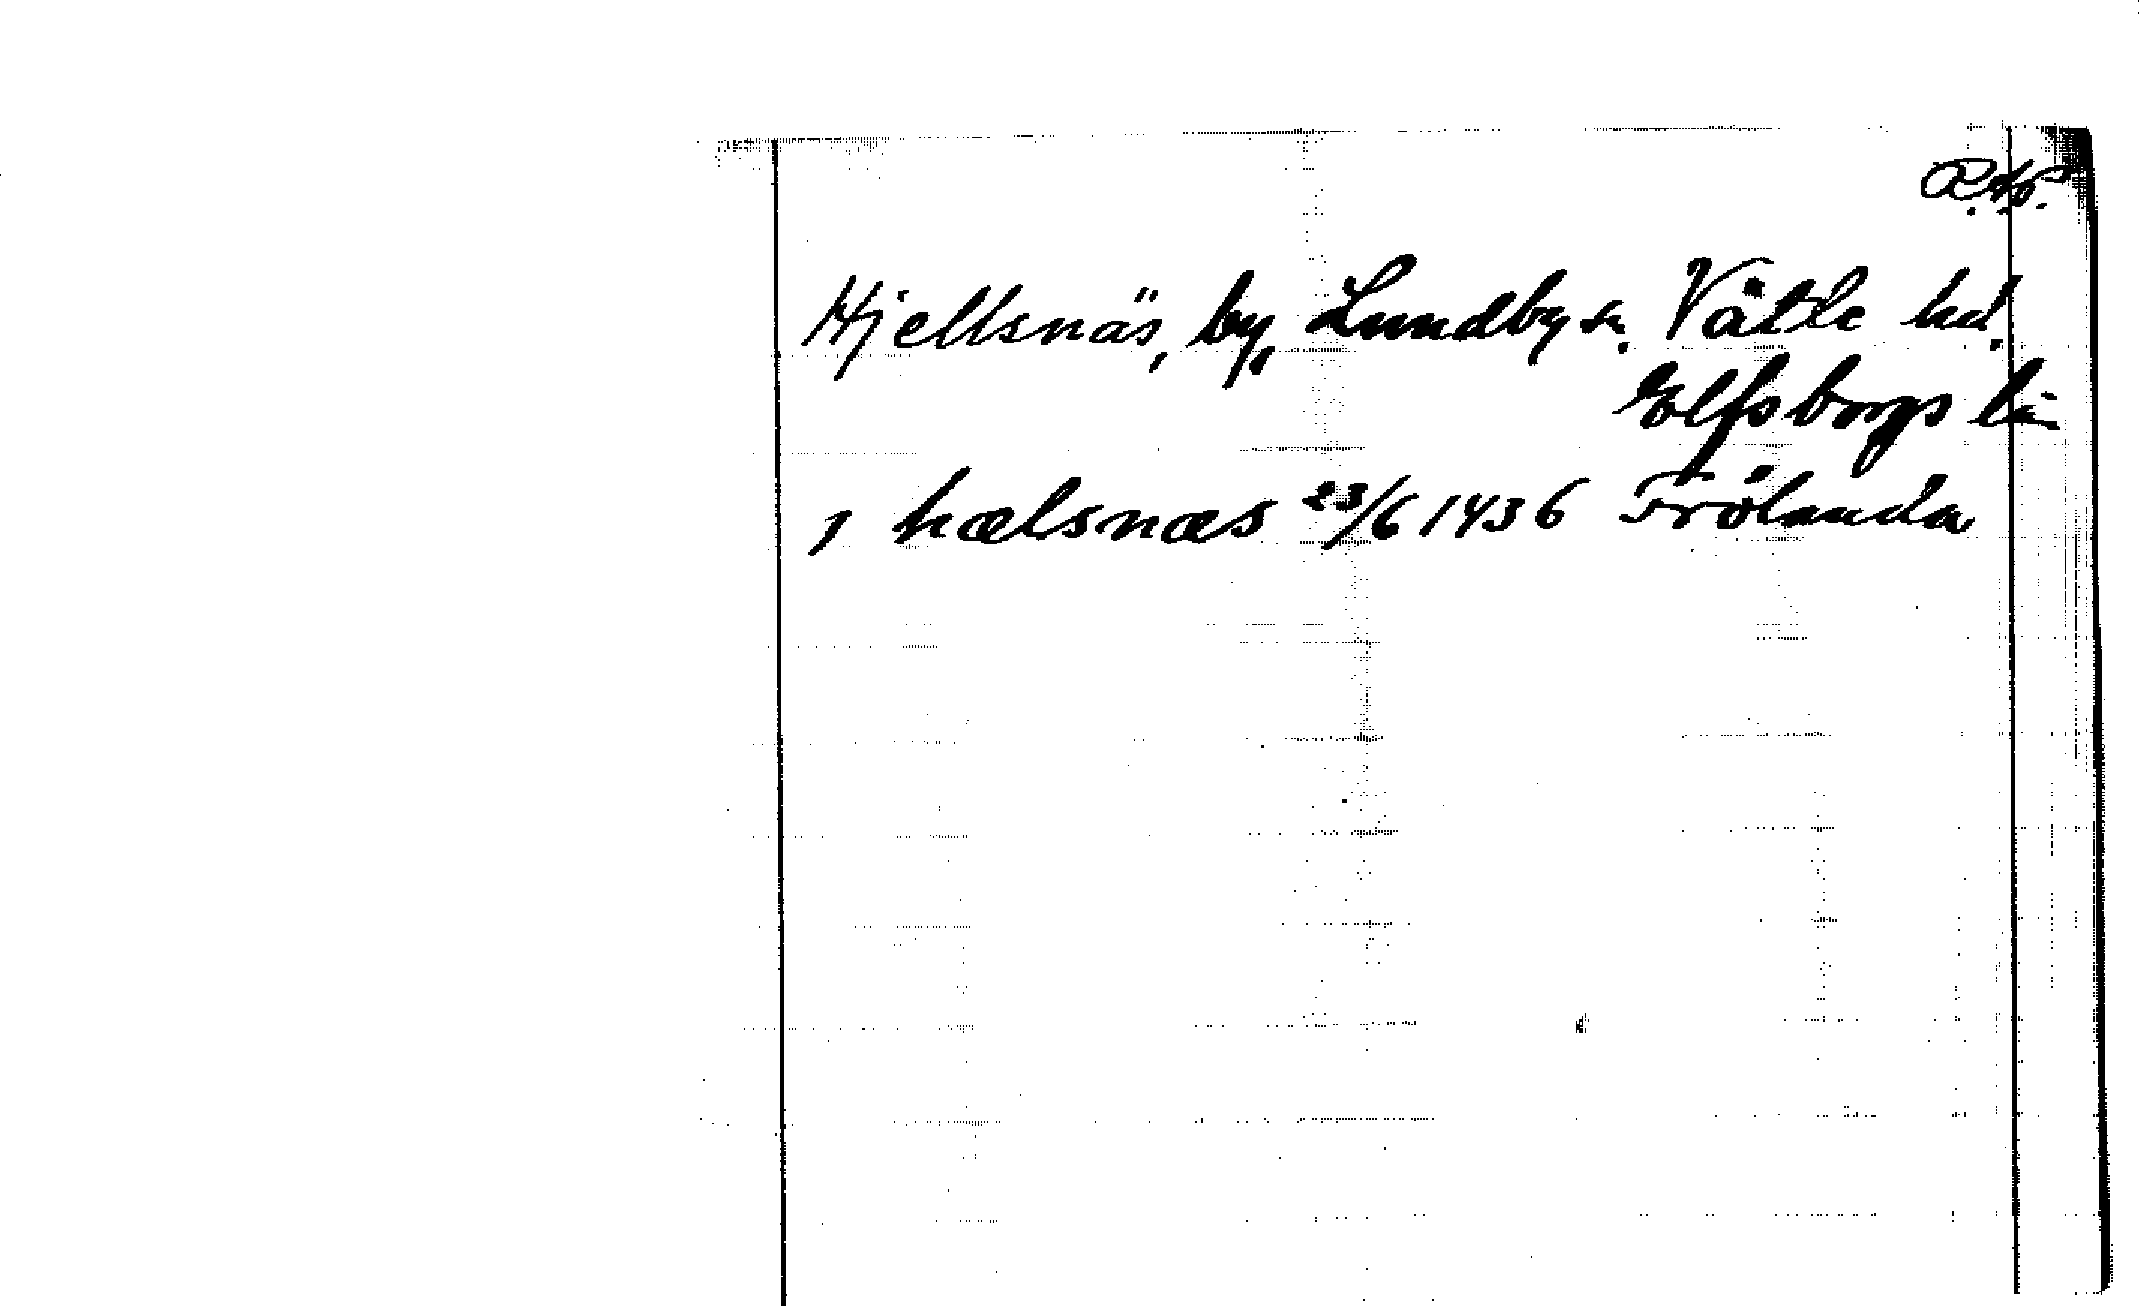 R.Ap.
Hjellsnäs, by, Lundby sn. Vätle hd.
Elfsborgs län
j hælsnæs 23/6 1436 Frölanda